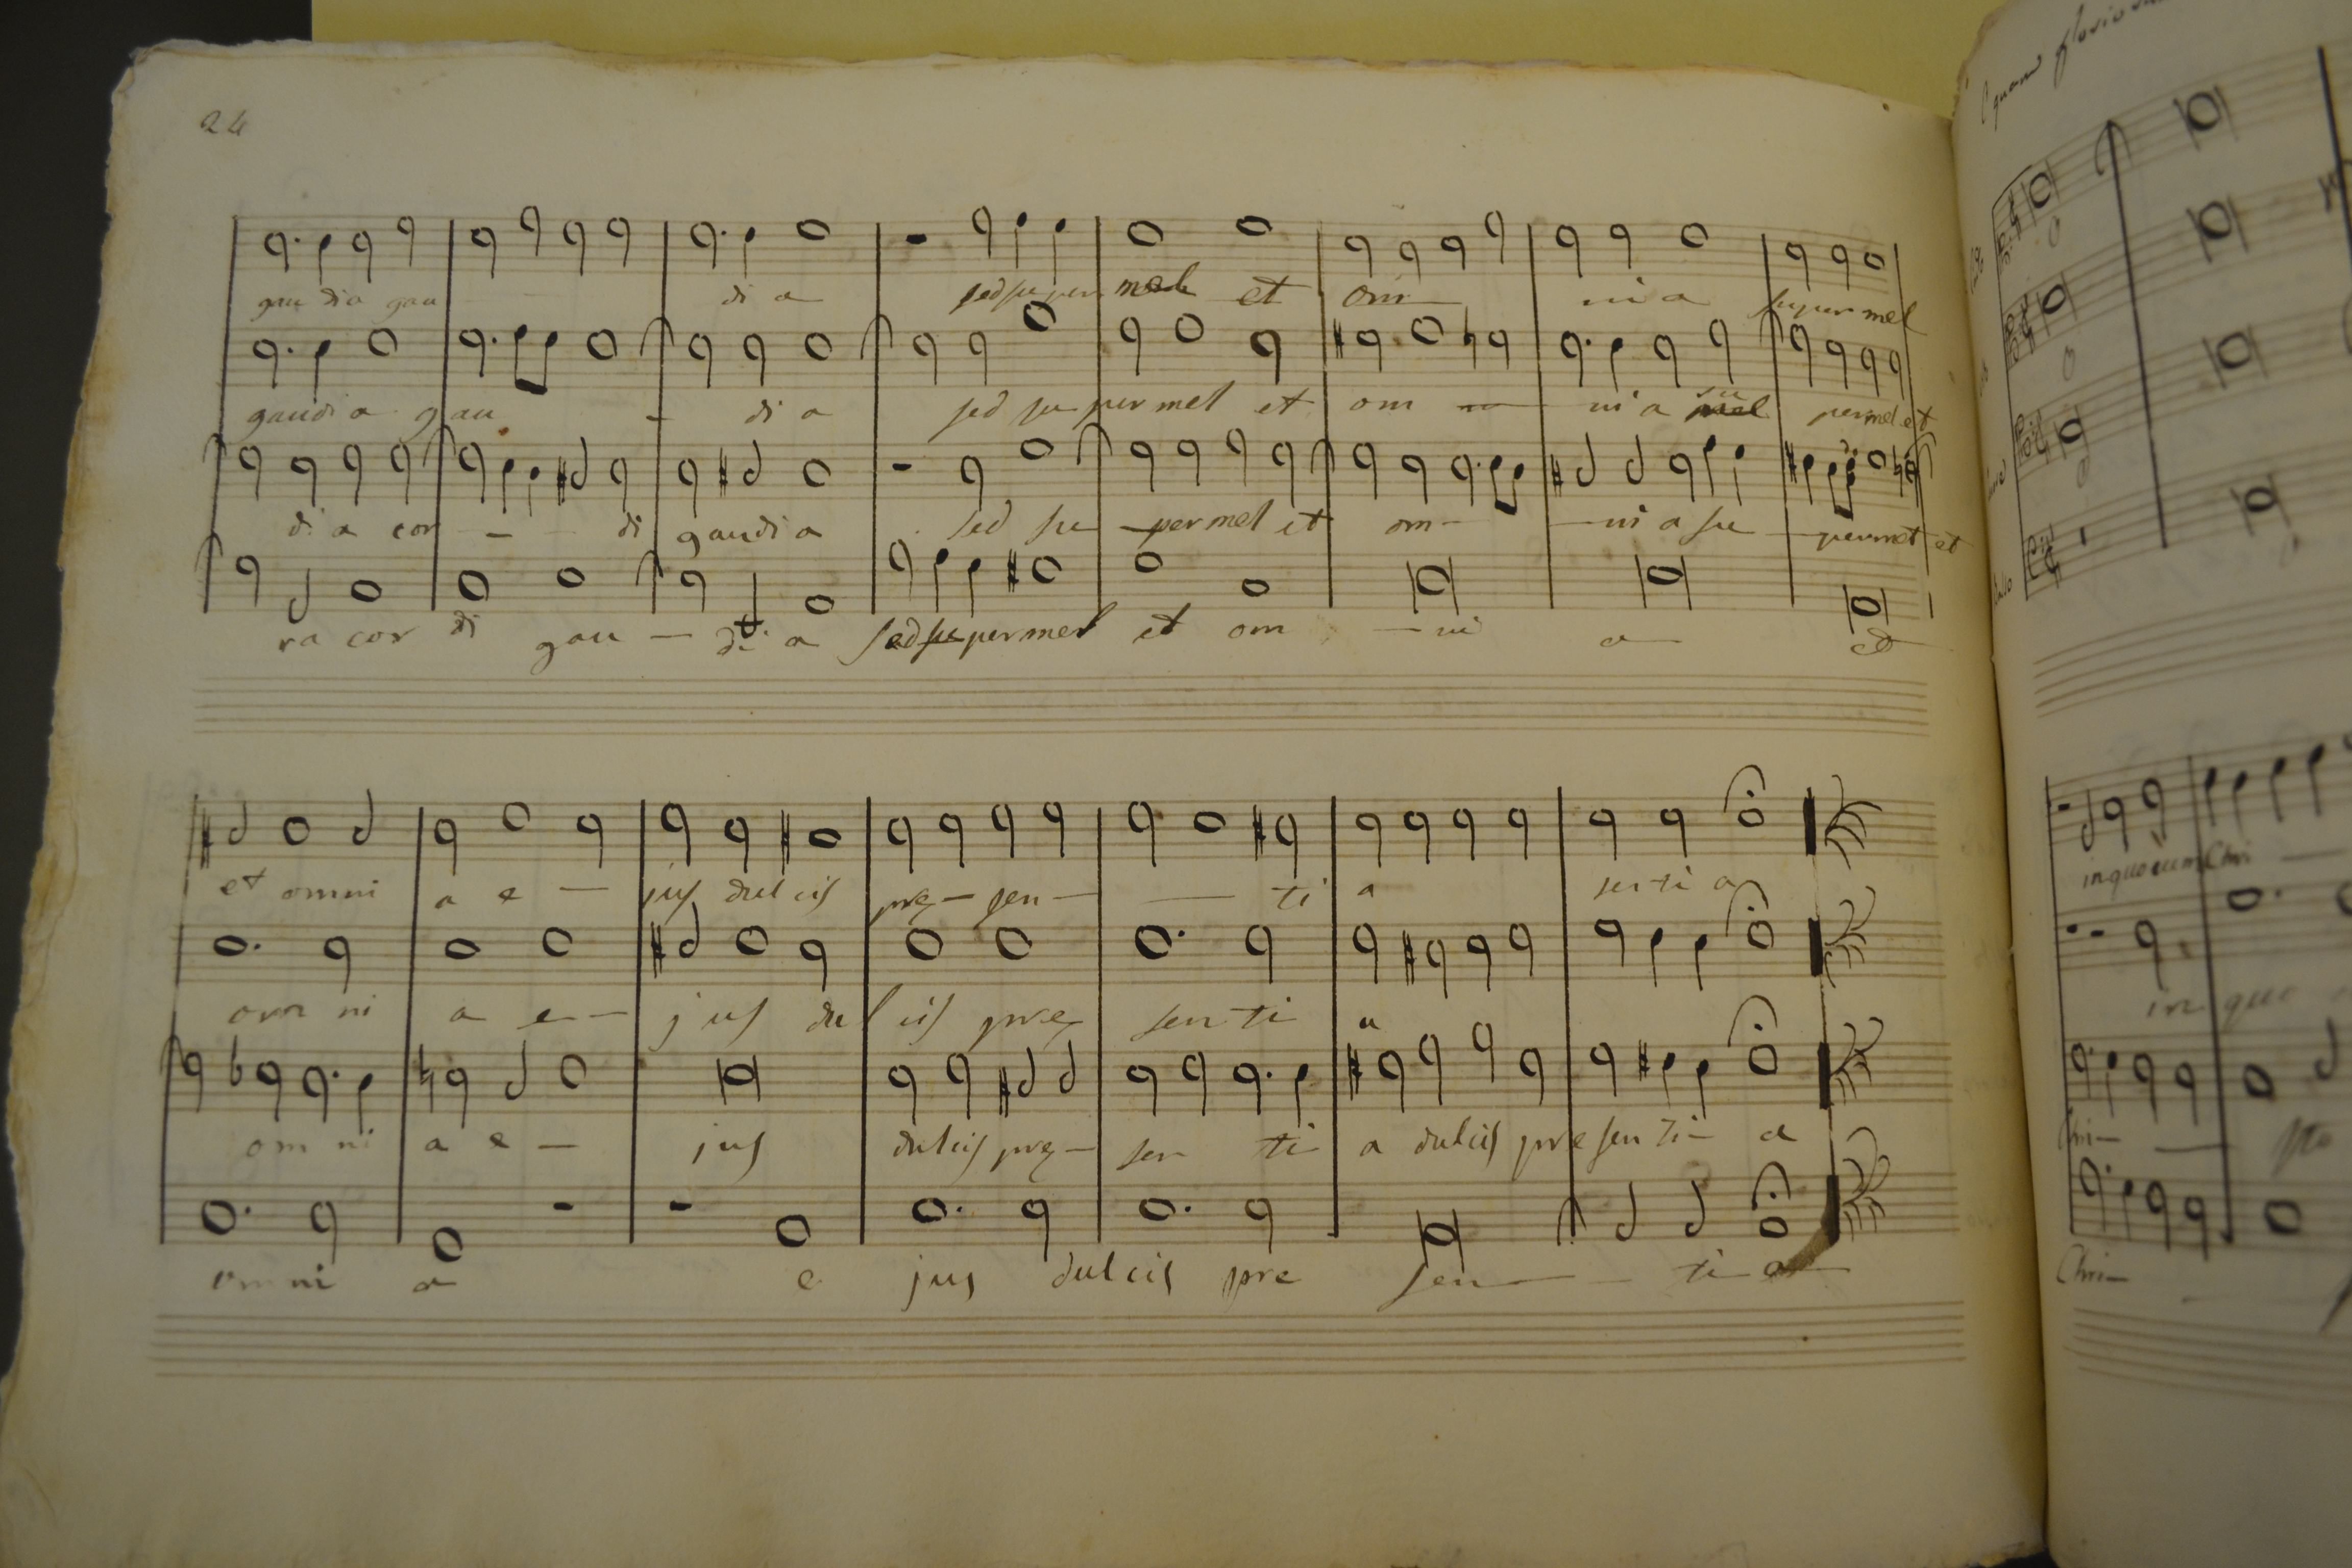 24
gau dia gau di a sed su per mel et om ni a super mel
gaudi a gau - di a sed su per mel et om ni a su permel et
di a cor - - di gaudi a sed su - per mel et om - - ni a su - permel et
ra cor di gau - di a sed su per mel et om - ni a et
et omni a e - jus dul cis prę - sen - ti a senti a
om ni a e - jus dul cis prę sen ti a
om ni a e - jus dulcis prę - sen ti a dulcis pre sen ti - a
om ni a e jus dulcis pre sen - ti a
O quam glorio
in quo cum Chri
in quo
Chri - sto
Chri -